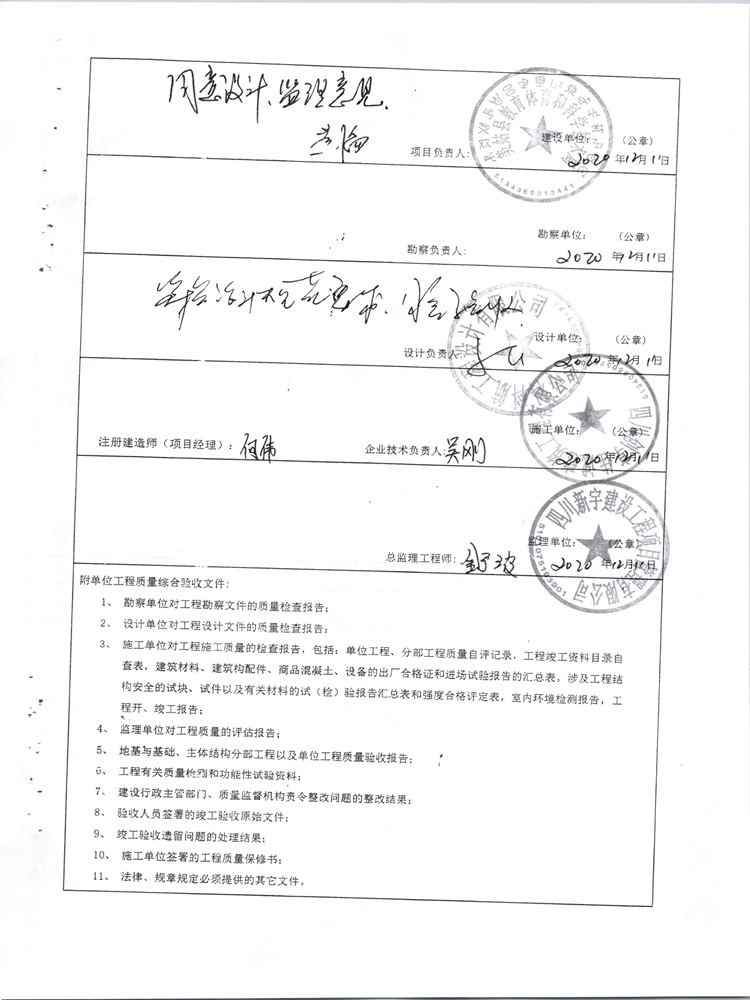 同意设计、监理意见.
项目负责人:
建设单位:
（公章）
2020年12月11日
5134365013441
勘察单位:
（公章）
勘察负责人:
2020年12月11日
设计单位:
（公章）
设计负责人:
2020年12月11日
施工单位:
（公章）
注册建造师（项目经理）: 何伟
企业技术负责人: 吴刚
2020年12月11日
四川新宇建设工程项目管理有限公司
监理单位:
（公章）
总监理工程师:
2020年12月11日
附单位工程质量综合验收文件:
1、 勘察单位对工程勘察文件的质量检查报告;
2、 设计单位对工程设计文件的质量检查报告;
3、 施工单位对工程施工质量的检查报告，包括: 单位工程、分部工程质量自评记录，工程竣工资料目录自
查表，建筑材料、建筑构配件、商品混凝土、设备的出厂合格证和进场试验报告的汇总表，涉及工程结
构安全的试块、试件以及有关材料的试（检）验报告汇总表和强度合格评定表，室内环境检测报告，工
程开、竣工报告;
4、 监理单位对工程质量的评估报告;
5、 地基与基础、主体结构分部工程以及单位工程质量验收报告;
6、 工程有关质量检测和功能性试验资料;
7、 建设行政主管部门、质量监督机构责令整改问题的整改结果;
8、 验收人员签署的竣工验收原始文件;
9、 竣工验收遗留问题的处理结果;
10、 施工单位签署的工程质量保修书;
11、 法律、规章规定必须提供的其它文件。